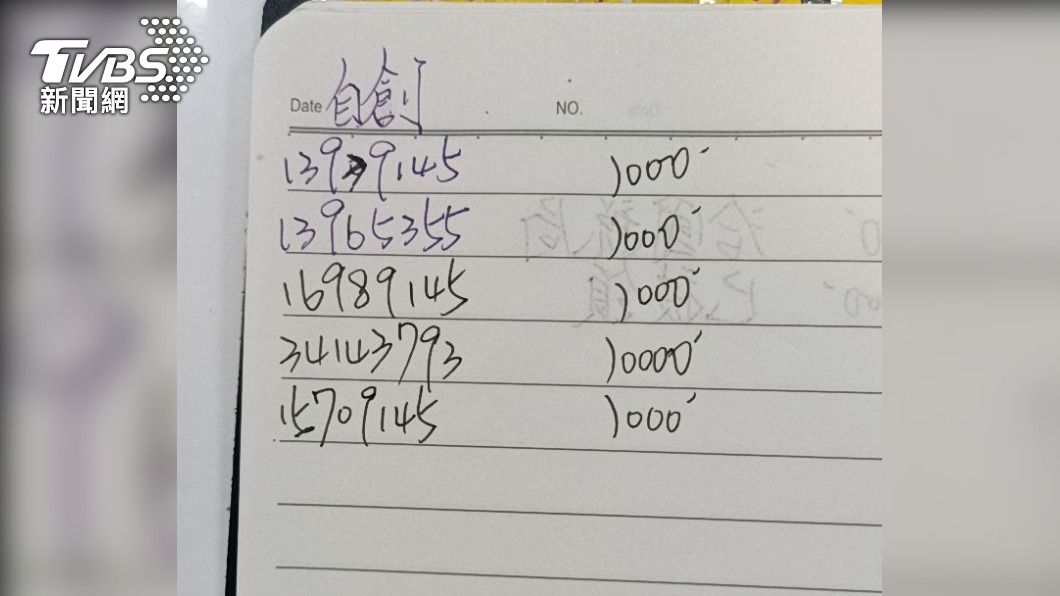 TVBS
新聞網
Date 自創 NO.
13979145 1000
13965355 1000
16989145 1000
34143793 10000
15709145 1000